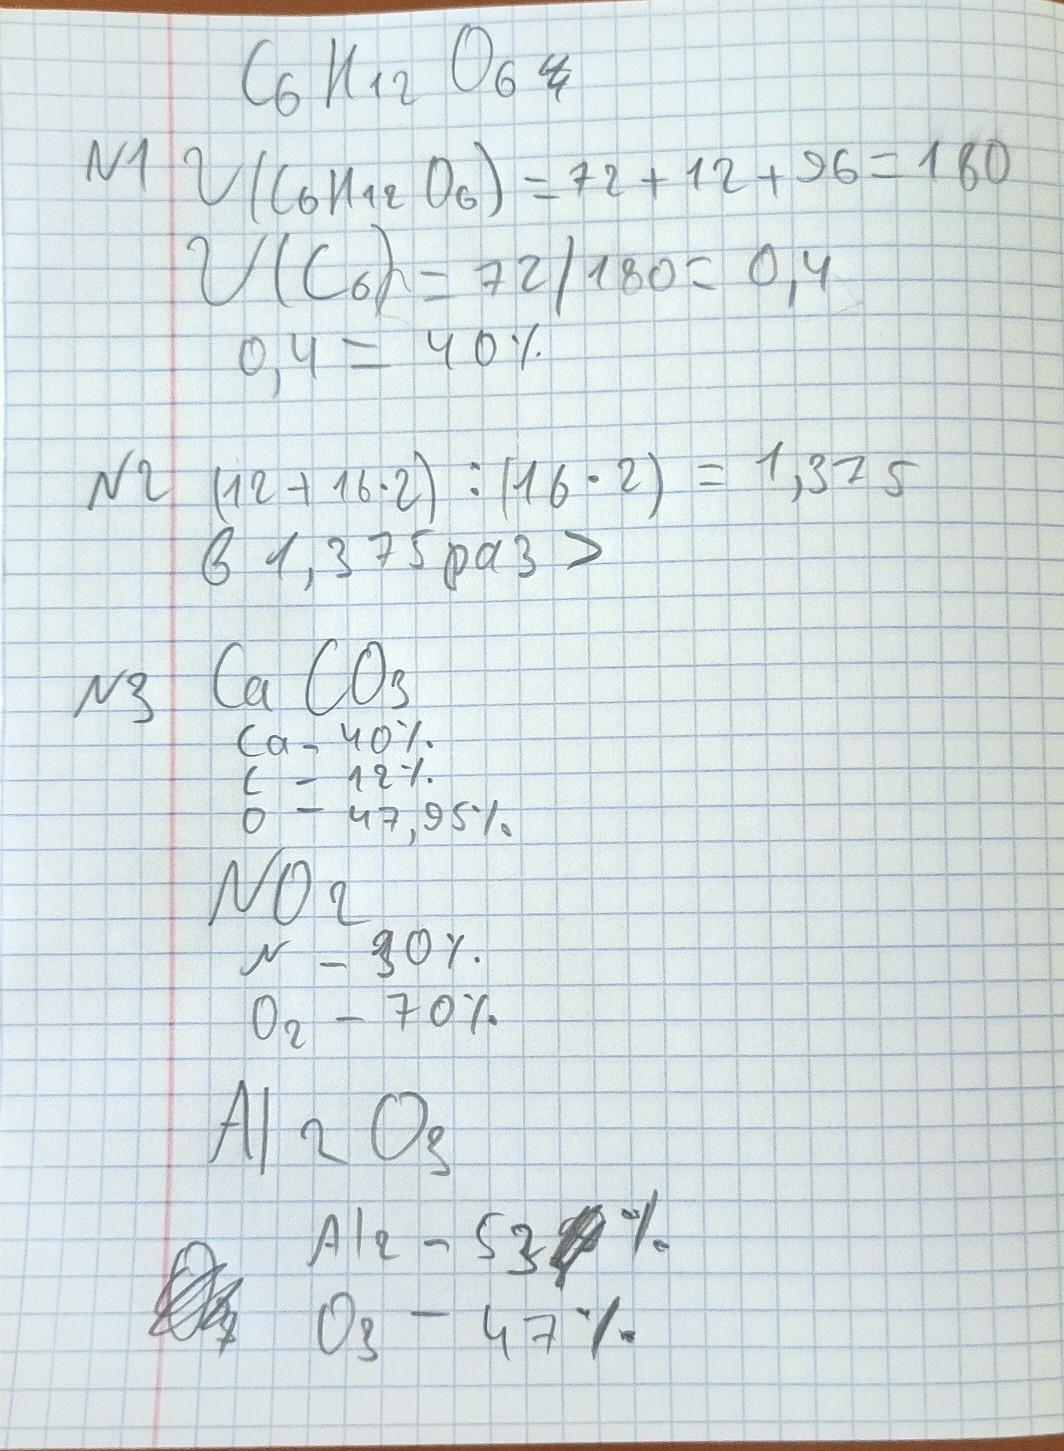 C₆H₁₂O₆
N1 V(C₆H₁₂O₆) = 72+12+96=180
V(C₆) = 72/180= 0,4
0,4 = 40%
N2 (12+16·2):(16·2) = 1,375
в 1,375 раз >
N3 CaCO₃
Ca - 40%
C - 12%
O - 47,95%
NO₂
N - 30%
O₂ - 70%
Al₂O₃
Al₂ - 53 %
O₃ - 47%